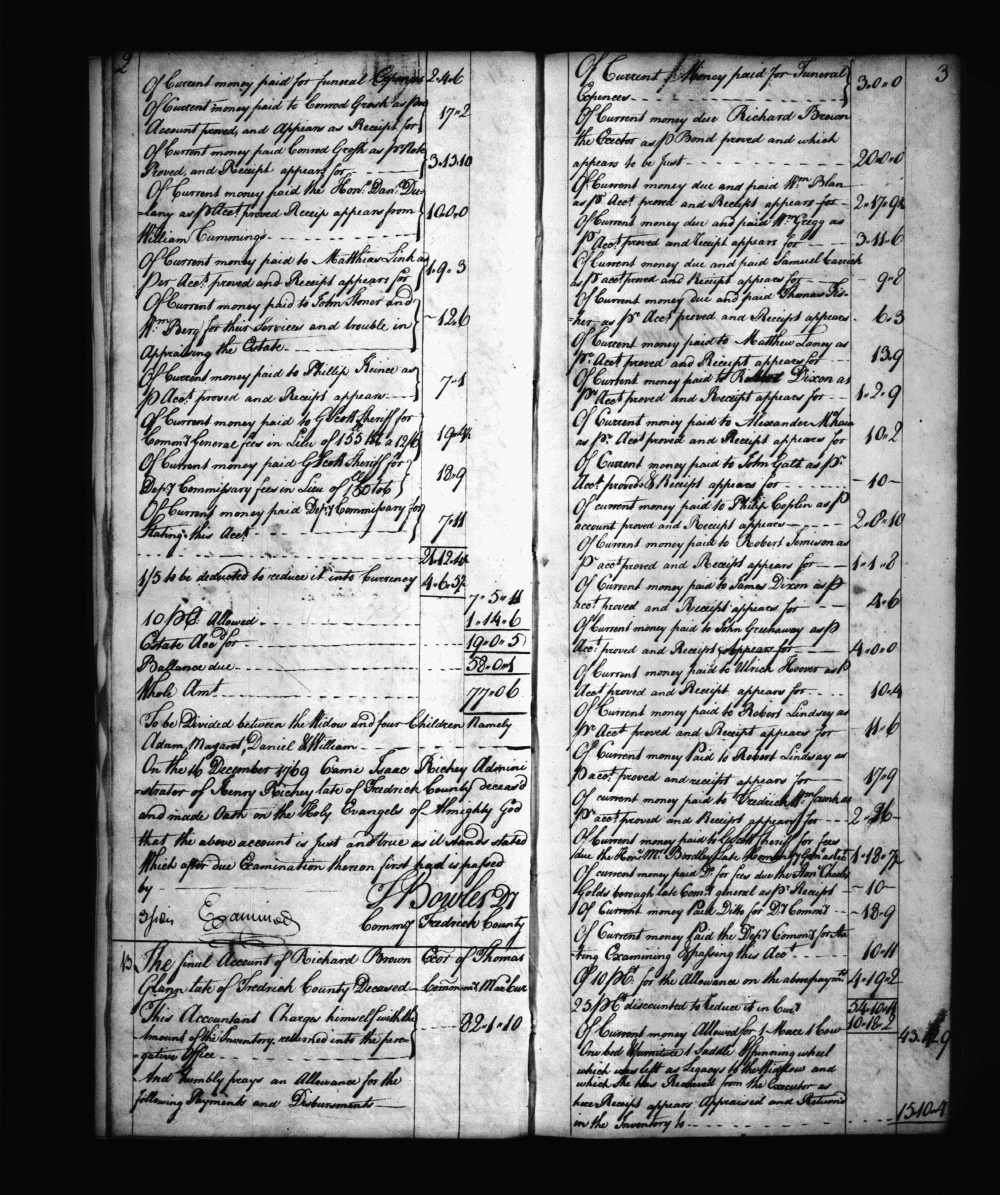 2
Of Current money paid for funeral Expences 2.4.6
Of Current money paid to Conrod Grosh as per
Account proved, and Appears as Receipt for 17.2
Of Current money paid Conrod Grosh as pr Note
Proved, and Receipt appears for 3.13.10
Of Current money paid the Honl. Danl. Du=
lany as p Acct. proved Receip appears from 10.0.0
William Cummings
Of Current money paid to Matthias Link as
Per Acct. proved and Receipt appears for 1.9.3
Of Current money paid to John Stoner and
Wm Berg for their Services and trouble in 12.6
Appraising the Estate
Of Current money paid to Phillip Kunce as
p Acct. proved and Receipt appears 7.1
Of Current money paid to G Scott Sheriff for
Commy General fees in Lieu of 155 lbt a 12/6
Of Current money paid G Scott Sheriff for 18.9
Depy Commissary fees in Lieu of 150 tob
Of Current money paid Depy Commissary for
Stating this Acct. 7.11
21.12.4
1/5 to be deducted to reduce it into Currency 4.6.5
7.5.11
10 p Ct Allowed 1.14.6
Estate Accd for 19.0.5
Ballance due 58.0.1
Whole Amt. 77.0.6
To be Divided between the Widow and four Children Namely
Adam, Magaret, Daniel & William
On the 16 December 1769 Came Isaac Richey Admini
=strator of Henry Richey late of Fredrick County deceasd
and made Oath on the Holy Evangels of Almighty God
that the above account is Just and true as it stands stated
Which after due Examination thereon first had is passed
by T Bowles Dy
Examined Commy Fredrick County
13 The final Account of Richard Brown Exor of Thomas
Glann late of Fredrick County Deceased Mar Cur
This Accountant Charges himself with the
amount of the Inventory returned into the prero- 82.1.10
=gative Office
And humbly prays an Allowance for the
following Payments and Disbursments
3
Of Current Money paid for Funeral
Expences 3.0.0
Of Current money due Richard Brown
the Exector as p Bond proved and which
appears to be Just 20.0.0
Of Current money due and paid Wm. Blan
as pr Acct. proved and Receipt appears for 2.17.9
Of Current money due and paid Wm Gregg as
pr Acct. proved and Receipt appears for 3.11.6
Of Current money due and paid Samuel Carrick
as p acct proved and Receipt appears for 9.8
Of Current money due and paid Thomas Fis-
=her as pr Acct proved and Receipt appears 6.3
Of Current money paid to Matthew Laney as
pr Acct proved and Receipt appears for 13.9
Of Current money paid to Robert Dixon as
pr Acct proved and Receipt appears for 1.2.9
Of Current money paid to Alexander
as pr Acct proved and Receipt appears for 10.2
Of Current money paid to John Galt as pr
Acct. proved & Receipt appears for 10
Of current money paid to Philip Coplin as p
account proved and Receipt appears 2.8.10
Of Current money paid to Robert Jemison as
pr acct proved and Receipt appears for 1.1.8
Of Current money paid to James Dixon as p
acct proved and Receipt appears for 4.6
Of Current money paid to John Greenaway as p
Acct. proved and Receipt appears for 4.0.0
Of Current money paid to Ulrick Hoover as p
Acct proved and Receipt appears for 10.4
Of Current money paid to Robert Lindsey as
pr Acct proved and Receipt appears for 11.6
Of Current money Paid to Robert Lindsay as
p acct. proved and receipt appears for 17.9
Of current money paid to Fredrick Wm as
pr acct proved and Receipt appears for
Of Current money paid to G Scott Sheriff for fees
due the Honl. Mr Bordley Late Commy Gen as 1.18.7
Of current money paid Do. for fees due the Honl. Charles
Golds borough late Comy general as pr Receipt 10
Of Current money Paid Ditto for Dy Commy 18.9
Of Current money Paid the Depy Commy for Sta
ting Examining & passing this Acct. 10.11
Of 10 p Ct for the Allowance on the above paymts 4.19.2
54.10.11
25 p Ct discounted to Reduce it in Curt. 10.18.2
Of Current money Allowed for 1 Mare 1 Cow
One bed & furniture 1 Saddle & Spinning wheel
which was left as Legacys to the Widow and
which she has Received from the Executor as
here Receipt appears Appraised and Returnd
in the Inventory to 15.10.4